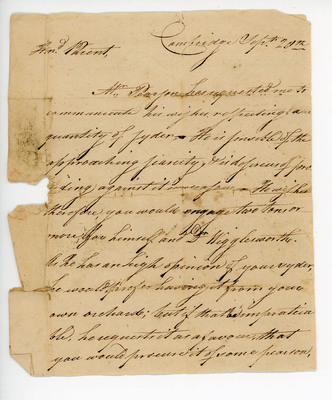 Cambridge Sep. 20th
Hon.d Parent,
Mr. Pearson has requested me to
communicate his wishes, respecting a
quantity of cyder. He is sensible of the
approaching scarcity, & is desirous of pro-
viding against it in season. He wishes
therefore, you would engage two tons, or
more, for himself and Dr. Wigglesworth.
As he has an high opinion of your cyder,
he would prefer having it from your
own orchard; but if that is impractica-
ble, he requests it as a favour, that
you would procure it of some person,